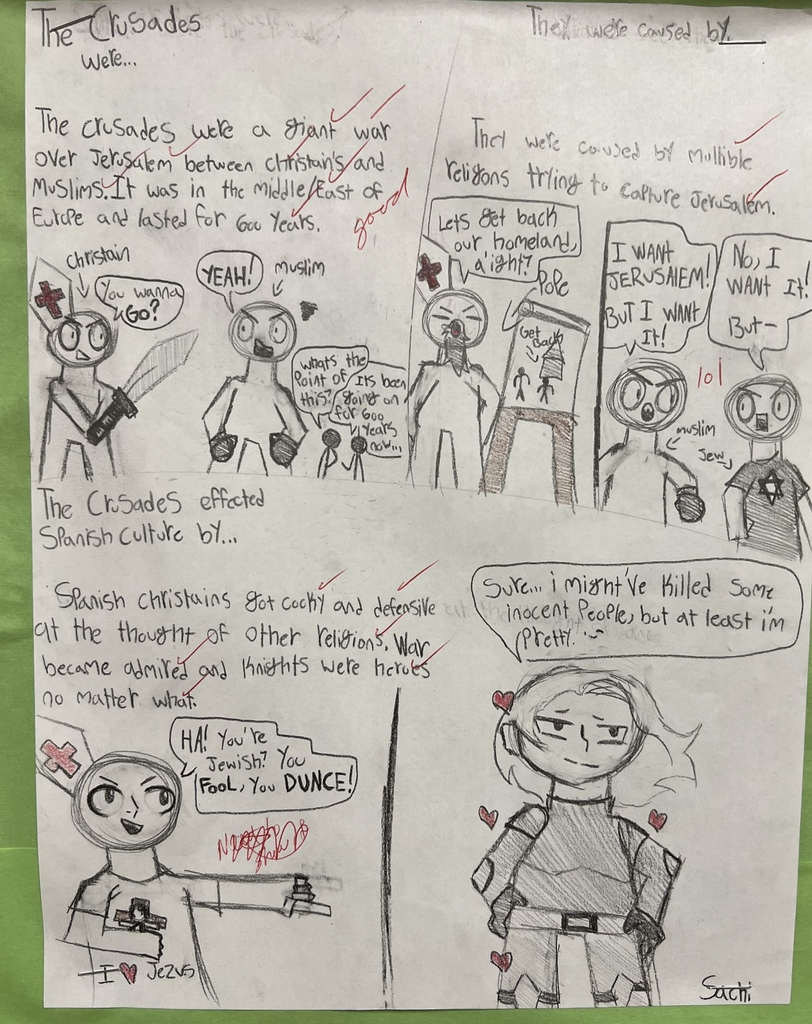 The Crusades
were...
The crusades were a giant war
over Jerusalem between christain's and
Muslims. It was in the middle/East of
Europe and lasted for 600 years.
good
christain
You wanna
Go?
YEAH!
muslim
whats the
Point of
this?
Its been
going on
for 600
Years
now...
They were caused by
They were caused by multible
religons trying to capture Jerusalem.
Lets get back
our homeland,
a'ight?
Pope
Get
Back
I WANT
JERUSALEM!
BUT I WANT
It!
No, I
WANT It!
But-
lol
muslim
Jew
The Crusades effected
Spanish culture by...
Spanish christains got cocky and defensive
at the thought of other religions. War
became admired and Knights were heroes
no matter what.
HA! You're
Jewish? You
FOOL, You DUNCE!
I ♥ Jezus
Sure... i might've killed some
inocent People, but at least i'm
pretty.
Sachi